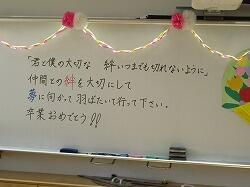 「君と僕の大切な 絆いつまでも切れないように」
仲間との絆を大切にして
夢に向かって羽ばたいて行って下さい。
卒業おめでとう!!